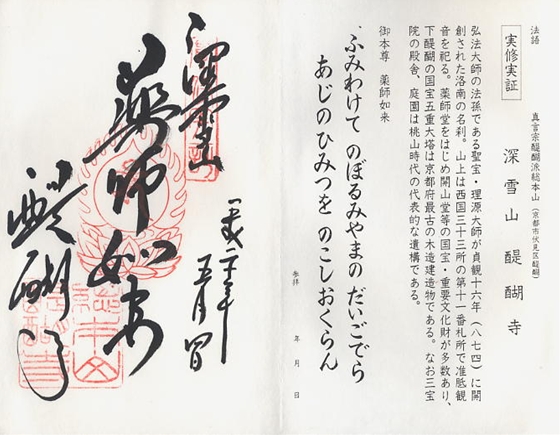 法語
真言宗醍醐派総本山(京都市伏見区醍醐)
実修実証
深雪山 醍醐寺
弘法大師の法孫である聖宝・理源大師が貞観十六年(八七四)に開
創された洛南の名刹。山上は西国三十三所の第十一番札所で准胝観
音を祀る。薬師堂をはじめ開山堂等の国宝・重要文化財が多数あり、
下醍醐の国宝五重大塔は京都府最古の木造建造物である。なお三宝
院の殿舎、庭園は桃山時代の代表的な遺構である。
御本尊 薬師如来
ふみわけて のぼるみやまの だいごでら
あじのひみつを のこしおくらん
参拝 年 月 日
平成二十三年
五月
深雪山
薬師如来
醍醐寺